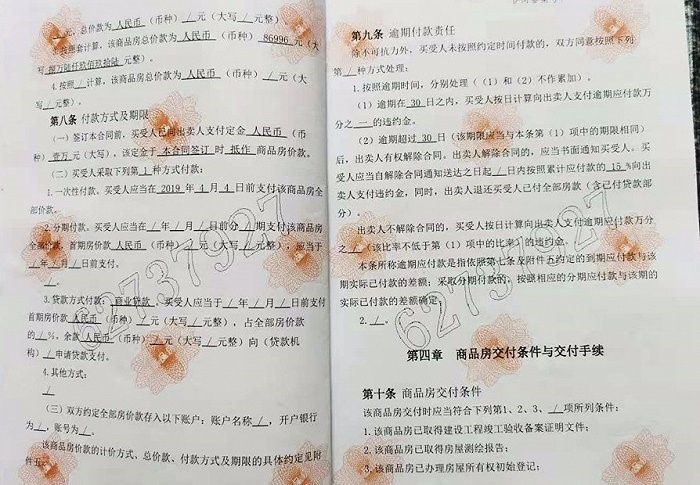 / 元，总价款为 人民币 （币种） / 元（大写 /
3.按照套计算，该商品房总价款为 人民币 （币种） 86996 元（大
写 捌万陆仟玖佰玖拾陆 元整）。
4.按照 / 计算，该商品房总价款为 人民币 （币种） / 元（大
写 / 元整）。
第八条 付款方式及期限
（一）签订本合同前，买受人已向出卖人支付定金 人民币 （币
种） 壹万 元（大写），该定金于 本合同签订 时 抵作 商品房价款。
（二）买受人采取下列第 1 种方式付款：
1.一次性付款。买受人应当在 2019 年 4 月 4 日前支付该商品房全
部价款。
2.分期付款。买受人应当在 / 年 / 月 / 日前分 / 期支付该商品房
全部价款，首期房价款 人民币 （币种） / 元（大写 / 元整），应当于
/ 年 / 月 / 日前支付。
/ 。
3.贷款方式付款： 商业贷款 。买受人应当于 / 年 / 月 / 日前支付
首期房价款 人民币 （币种） / 元（大写 / 元整），占全部房价款
的 / %。余款 人民币 （币种） / 元（大写 / 元整）向 （贷款机
构） / 申请贷款支付。
4.其他方式：
/
（三）双方约定全部房价款存入以下账户：账户名称 / ，开户银行
为 / ，账号为 / 。
该商品房价款的计价方式、总价款、付款方式及期限的具体约定见附
件五。
62737927
第九条 逾期付款责任
除不可抗力外，买受人未按照约定时间付款的，双方同意按照下列
第 / 种方式处理：
1.按照逾期时间，分别处理（（1）和（2）不作累加）。
（1）逾期在 30 日之内，买受人按日计算向出卖人支付逾期应付款万
分之 一 的违约金。
（2）逾期超过 30 日（该期限应当与本条第（1）项中的期限相同）
后，出卖人有权解除合同。出卖人解除合同的，应当书面通知买受人。买
受人应当自解除合同通知送达之日起 / 日内按照累计应付款的 15 %向出
卖人支付违约金，同时，出卖人退还买受人已付全部房款（含已付贷款部
分）。
出卖人不解除合同的，买受人按日计算向出卖人支付逾期应付款万分
之 / （该比率不低于第（1）项中的比率）的违约金。
本条所称逾期应付款是指依照第七条及附件五约定的到期应付款与该
期实际已付款的差额；采取分期付款的，按照相应的分期应付款与该期的
实际已付款的差额确定。
2. / 。
62737927
第四章 商品房交付条件与交付手续
第十条 商品房交付条件
该商品房交付时应当符合下列第1、2、3、 / 项所列条件：
1.该商品房已取得建设工程竣工验收备案证明文件；
2.该商品房已取得房屋测绘报告；
3.该商品房已办理房屋所有权初始登记；